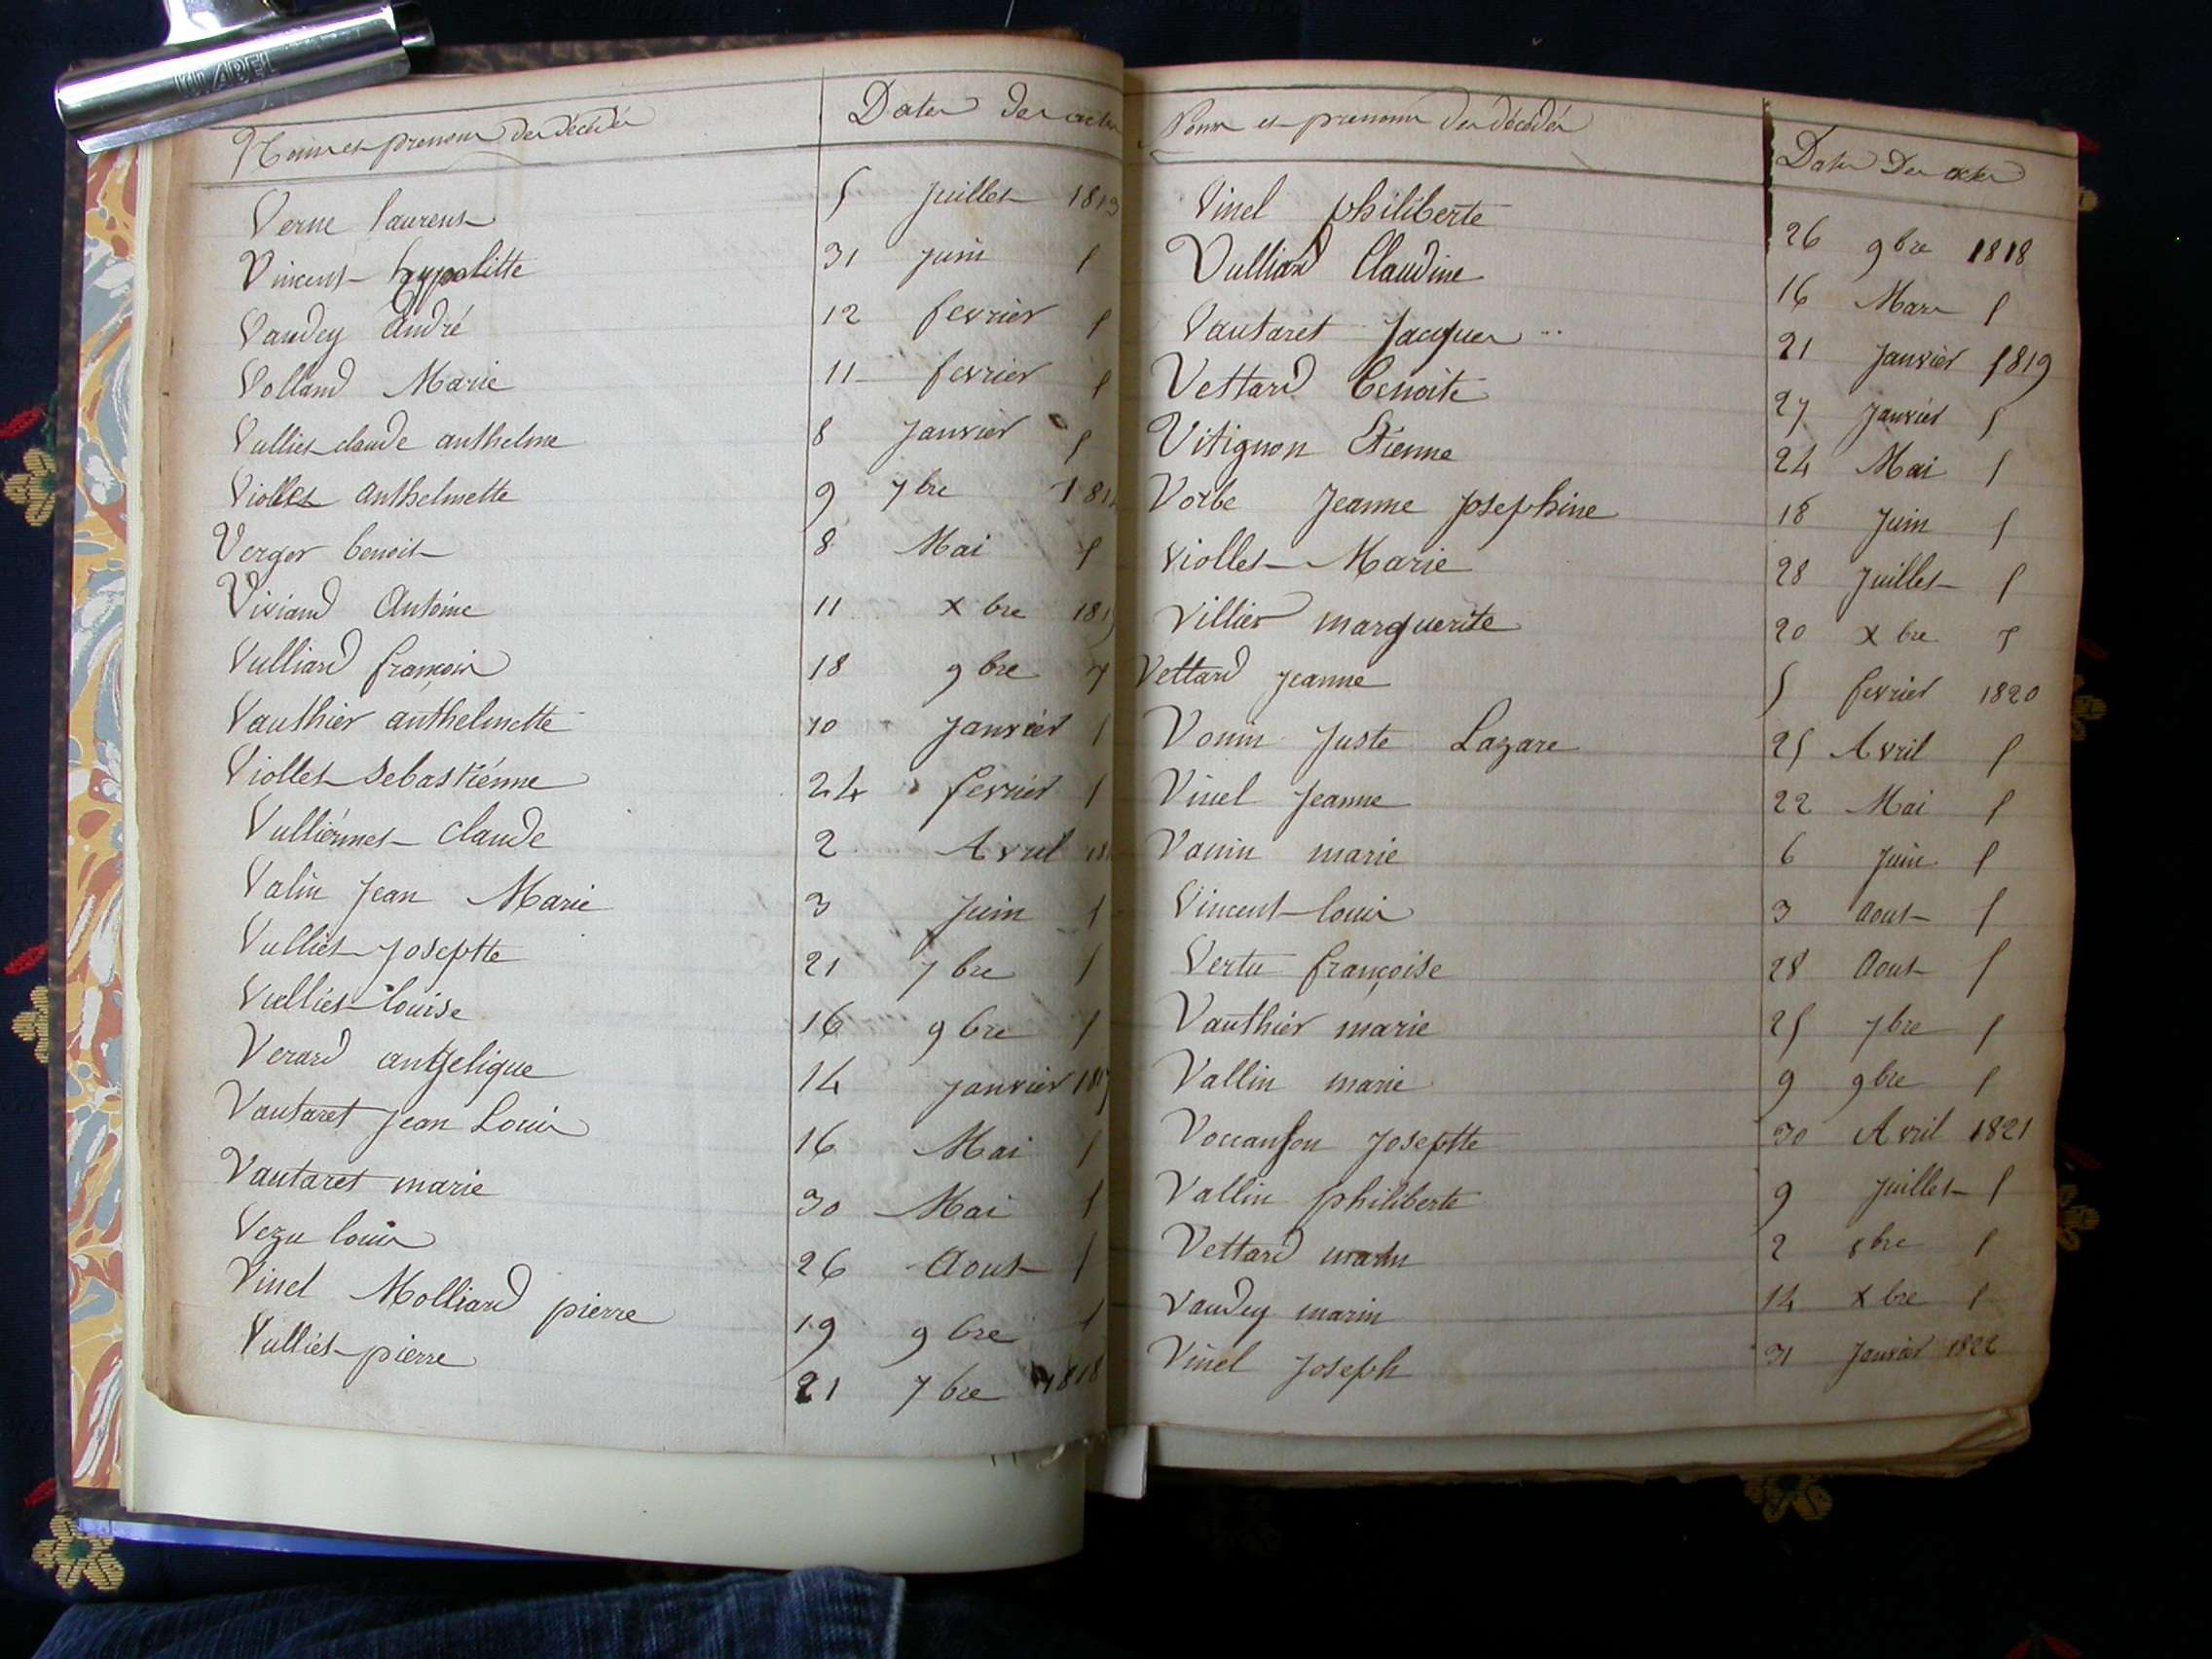 K.LABEL
Noms et prenoms des décédés Dates des actes
Verne laurent 5 Juillet 1813
Vincent hypolitte 31 Juin
Vandey André 12 fevrier
Volland Marie 11 fevrier
Vulliet claude anthelme 8 Janvier
Viollet anthelmette 9 7bre
Verger benoit 8 Mai
Viviand Antoine 11 xbre
Vulliard françois 18 9bre
Vauthier anthelmette 10 Janvier
Viollet Sebastiénne 24 fevrier
Vulliérmet claude 2 Avril
Valin Jean Marie 3 Juin
Vulliet Josephte 21 7bre
Vulliet louise 16 9bre
Verard angelique 14 Janvier
Vautaret Jean Louis 16 Mai
Vautaret marie 30 Mai
Vezu louis 26 Aout
Vinel Molliard pierre 19 9bre
Vulliet pierre 21 7bre 1818
Noms et prenoms des décédés Dates Des actes
Vinel philiberte 26 9bre 1818
Vulliard Claudine 16 Mars
Vautaret Jacques 21 Janvier 1819
Vettard Benoite 27 Janvier
Vitignon Etienne 24 Mai
Vorbe Jeanne Josephine 18 Juin
Viollet Marie 28 Juillet
Villier marguerite 20 xbre
Vettard Jeanne 5 fevrier 1820
Vonin Juste Lazare 25 Avril
Vinel Jeanne 22 Mai
Vonin marie 6 Juin
Vincent louis 3 Aout
Vertu françoise 28 Aout
Vauthier marie 25 7bre
Vallin marie 9 9bre
Voccanson Josephte 30 Avril 1821
Vallin philiberte 9 Juillet
Vettard 2 8bre
Vandey marin 14 xbre
Vinel Joseph 31 Janvier 1822